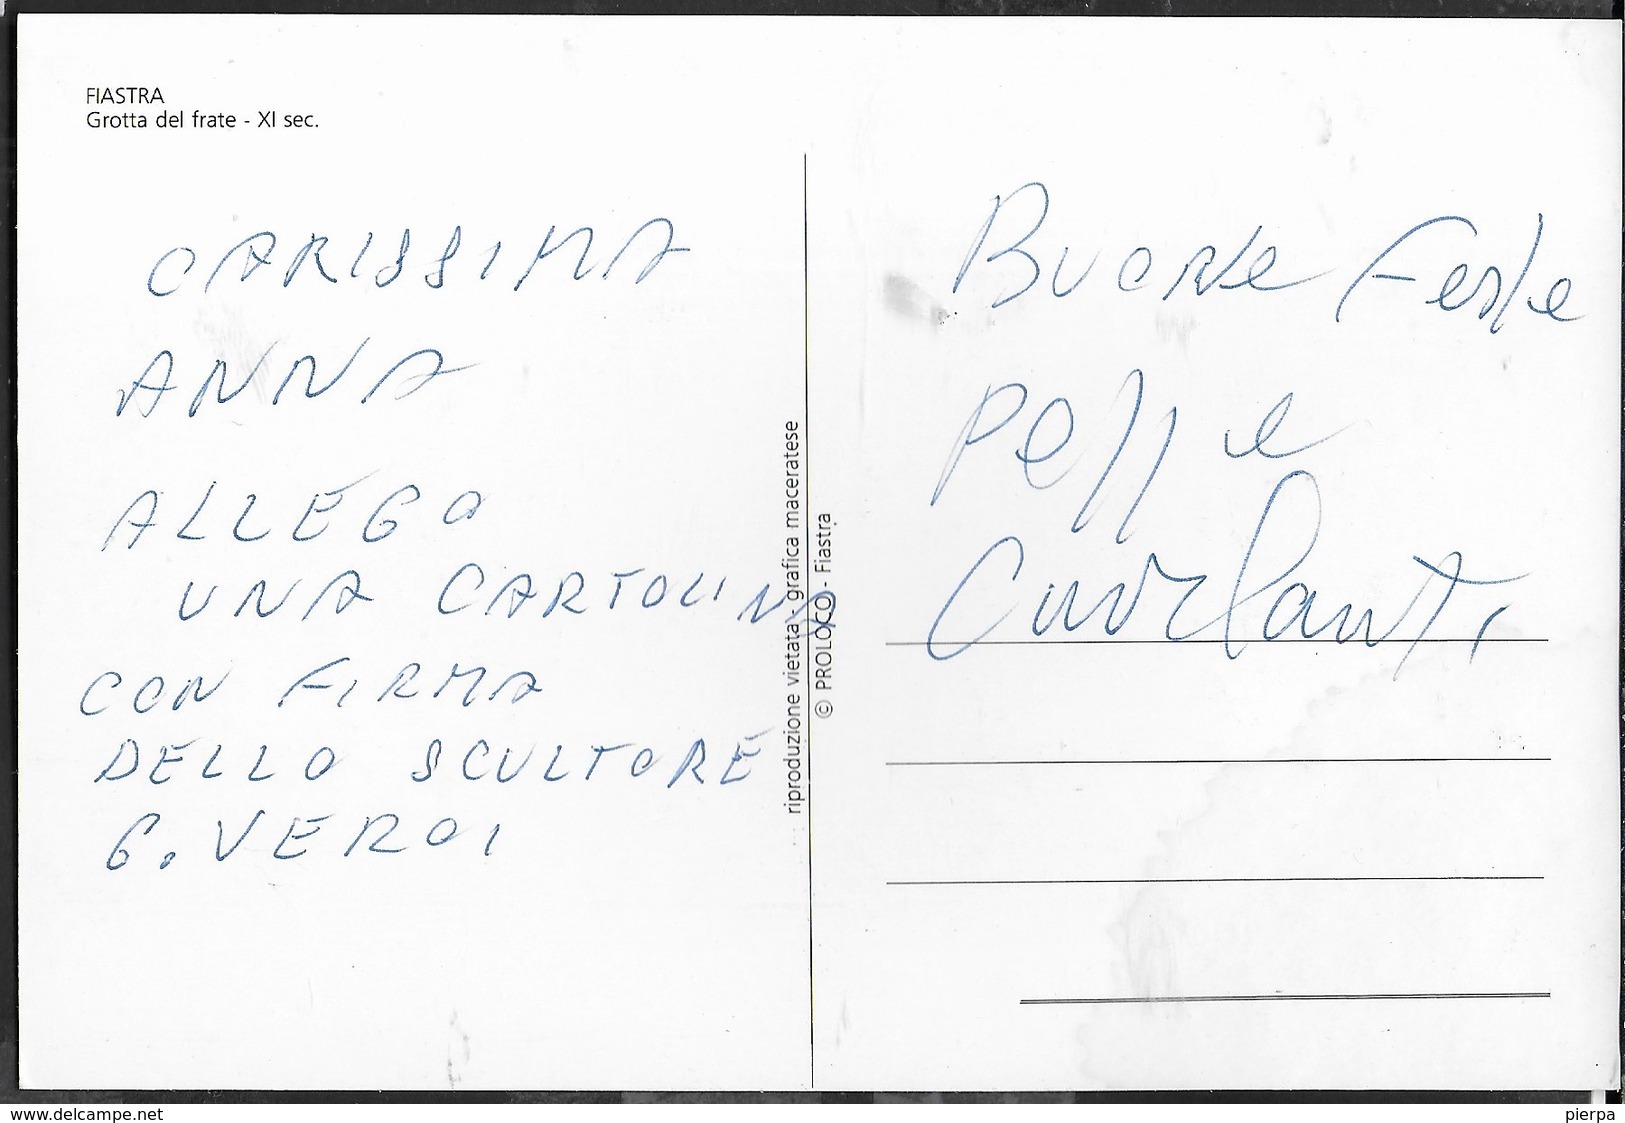 FIASTRA
Grotta del frate - XI sec.
CARISSIMA
ANNA
ALLEGO
UNA CARTOLINA
CON FIRMA
DELLO SCULTORE
G. VERDI
riproduzione vietata - grafica maceratese
© PROLOCO - Fiastra
Buone Feste
www.delcampe.net
pierpa